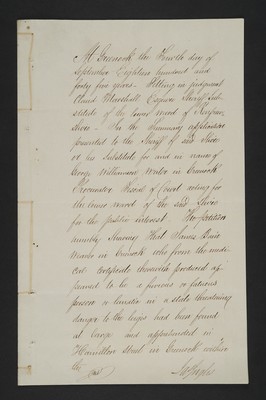 At Greenock the Fourth day of
September Eighteen hundred and
forty five years. Sitting in judgment
Claud Marshall Esquire Sheriff Sub-
stitute of the lower ward of Renfrew
shire. In the Summary application
presented to the Sheriff of said Shire
or his Substitute for and in name of
George Williamson Writer in Greenock
Procurator Fiscal of Court acting for
the lower ward of the said Shire
for the public interest. The petition
humbly Shewing That James
in Greenock who from the medi-
cal certificate herewith produced ap-
peared to be a furious or fatuous
person or lunatic in a state threatening
danger to the lieges had been found
at large and apprehended in
Hamilton Street in Greenock within
the